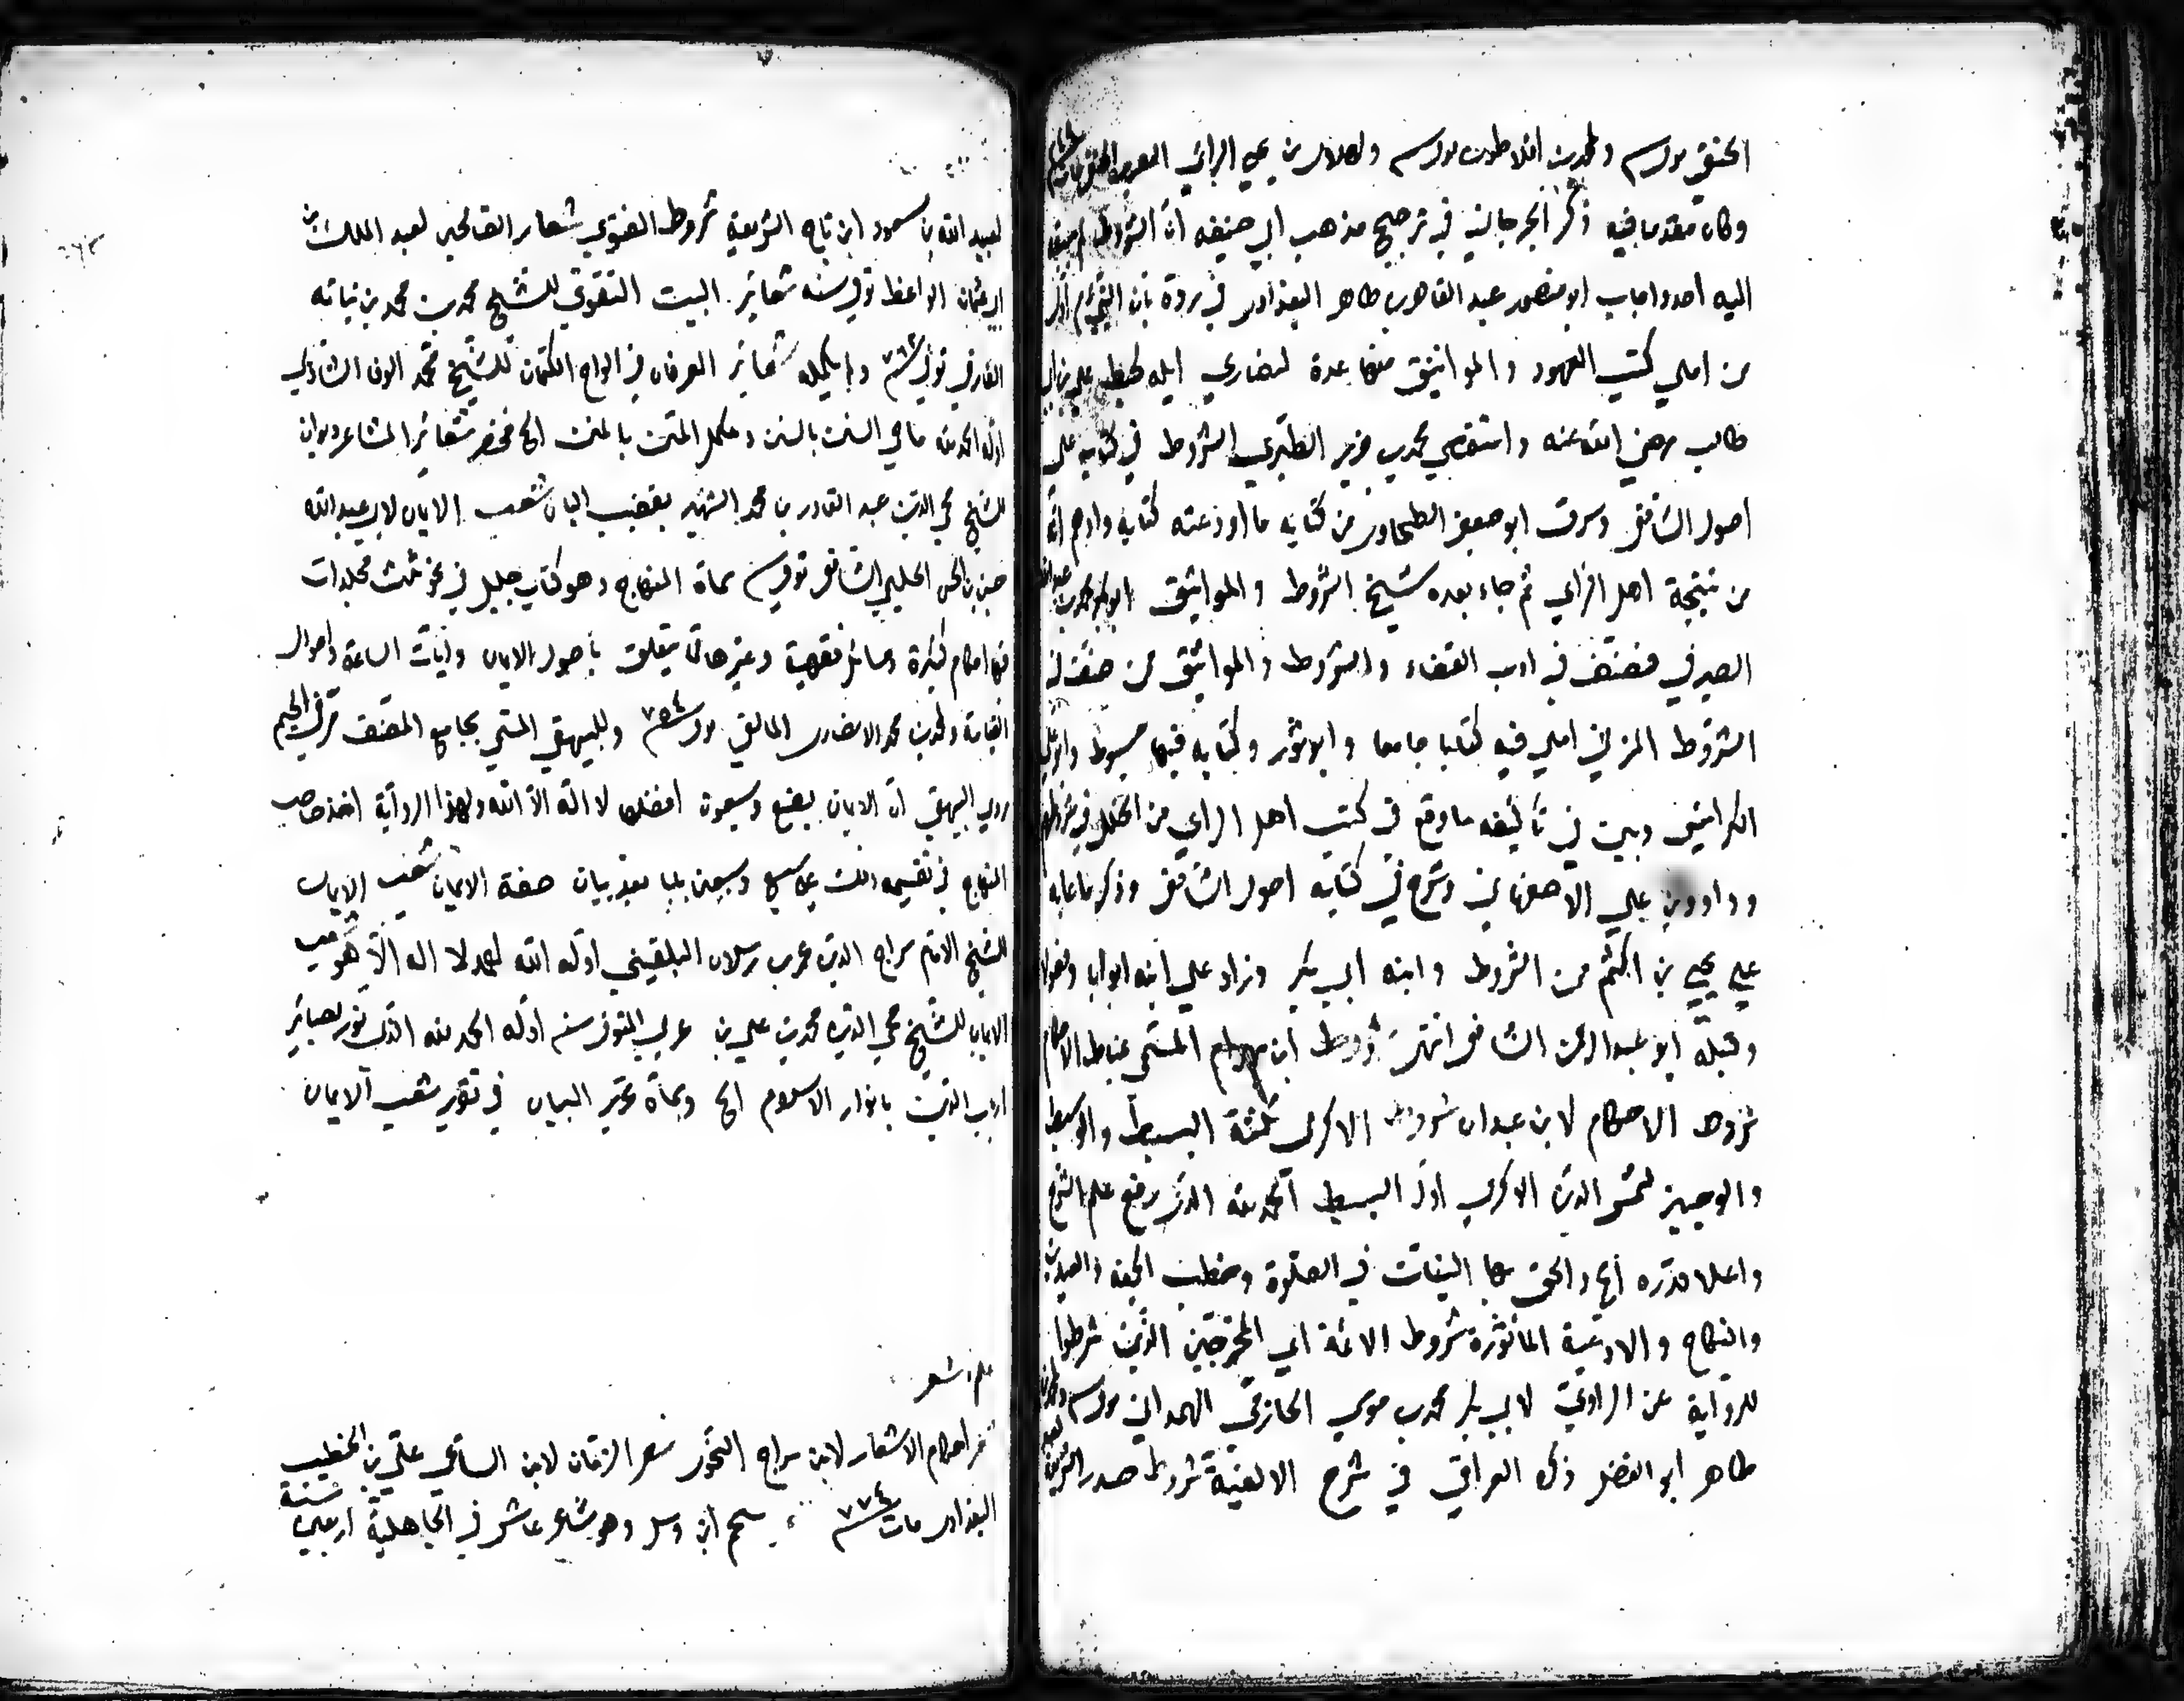 الحنفي ولمحمد بن افلاطون ولهلال بن يحيى الرائي البصري الحنفي مات
وكان مقدما فيه ذكر الجرجاني في ترجيح مذهب ابي حنيفه ان الشروط لم يسبقه
اليه احد واجاب ابو منصور عبد القاهر بن طاهر البغدادي في رده بان النبي م
من املى كتب العهود والمواثيق منها عدة لنصارى ايله بخط علي بن ابي
طالب رضي الله عنه واستقصى محمد بن جرير الطبري الشروط في كتابه على
اصول الشافعي وسرق ابو جعفر الطحاوي من كتابه ما اودعته كتابه واوهم انه
من نتيجة اهل الراي ثم جاء بعده شيخ الشروط والمواثيق ابو بكر محمد بن عبد الله
الصيرفي فصنف في ادب القضاء والشروط والمواثيق ممن صنف في
الشروط المزني املى فيه كتابا جامعا وابو ثور وكتابه فيها مبسوط وابو علي
الكرابيسي وبين في تأليفه ما وقع في كتب اهل الراي من الخلل في شروطهم
وداود بن علي الاصفهاني وشرح في كتابه اصول الشافعي وذكر ما عابه
على يحيى بن اكثم من الشروط وابنه ابي بكر وزاد على ابنه ابوابا وفصولا
وقبله ابو عبد الرحمن الشافعي انتهى شروط ابن المسمى بمناط الاحكام
شروط الاحكام لابن عبدان شروط الاكرى ثلثة البسيط والوسيط
والوجيز لشمس الدين الاكرى اول البسيط الحمد لله الذي رفع علم الشرع
واعلا قدره الخ والحق بها النيات في الصلوة وخطب الجمعة والعيدين
والنكاح والادعية المأثورة شروط الائمة اي المخرجين الذين شرطوا
للرواية عن الراوي لابي بكر محمد بن موسى الحازمي الهمداني ولمحمد بن
طاهر ابو الفضل ذكره العراقي في شرح الالفية شروط صدر الشريعة
لعبيد الله بن مسعود ابن تاج الشريعة شروط الفتوى شعار الصالحين لعبد الملك بن
ابي عثمان الواعظ توفي سنه شعائر البيت التقوي للشيخ محمد بن محمد بن نباته
الفارقي توفي ٧٦٢ ولم يكمله شعائر العرفان في الواح الكتمان للشيخ محمد الوفا الشاذلي
اوله الحمد لله ماحي السنن بالسنن ومكمل المتن بالمنن الخ مختصر شعائر المشاعر ديوان
للشيخ محي الدين عبد القادر بن محمد الشهير بقضيب البان شعب الايمان لابي عبد الله
حسين بن الحسن الحليمي الشافعي توفي سماه المنهاج وهو كتاب جليل في نحو ثلث مجلدات
فيها احكام كثيرة ومسائل فقهية وغيرها مما يتعلق باصول الايمان وايات الساعة واحوال
القيامة ولمحمد بن محمد الانصاري المالقي ٧٥٤ وللبيهقي المسمى بجامع المصنف
روى البيهقي ان الايمان بضع وسبعون افضلها لا اله الا الله ولهذا الرواية اخذ صاحب
المنهاج في تقسيمه ذلك على سبع وسبعين بابا بعد بيان صفة الايمان شعب الايمان
للشيخ الامام سراج الدين عمر بن رسلان البلقيني اوله الله احمد لا اله الا هو شعب
الايمان للشيخ محي الدين محمد بن علي بن عربي المتوفى سنه اوله الحمد لله الذي نور بصائر
ارباب الدين بانوار الاسلام الخ وسماه تحرير البيان في تقرير شعب الايمان
علم شعر
احكام الاشعار لابن سراج النحوي شعر الزمان لابن الساعي علي بن الخطيب
البغدادي مات ٧٧٤ وهو شاعر عاش في الجاهلية اربعين سنة